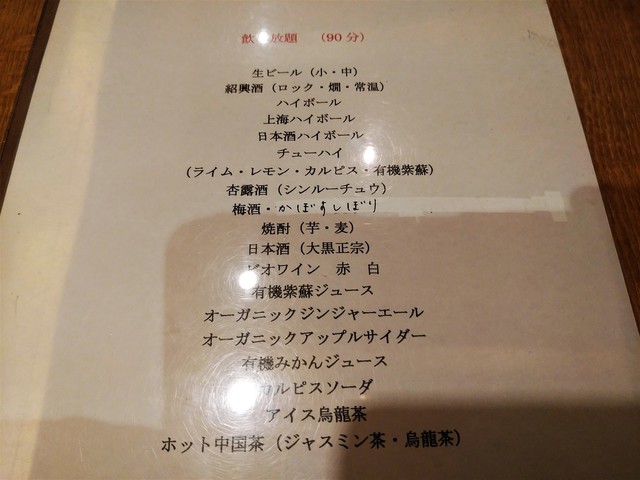 飲み放題 （90分）
生ビール（小・中）
紹興酒（ロック・燗・常温）
ハイボール
上海ハイボール
日本酒ハイボール
チューハイ
（ライム・レモン・カルピス・有機紫蘇）
杏露酒（シンルーチュウ）
梅酒・かぼすしぼり
焼酎（芋・麦）
日本酒（大黒正宗）
ビオワイン 赤 白
有機紫蘇ジュース
オーガニックジンジャーエール
オーガニックアップルサイダー
有機みかんジュース
カルピスソーダ
アイス烏龍茶
ホット中国茶（ジャスミン茶・烏龍茶）